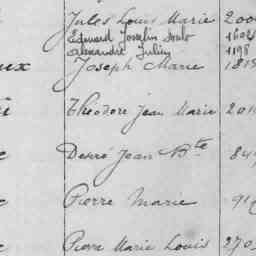 Jules Louis Marie 200
Edouard Joselin
Alexandre Julien 1198
ux Joseph Marie 1819
i Théodore Jean Marie 201
e Desré Jean Bte 84
e Pierre Marie 91
e Pierre Marie Louis 270